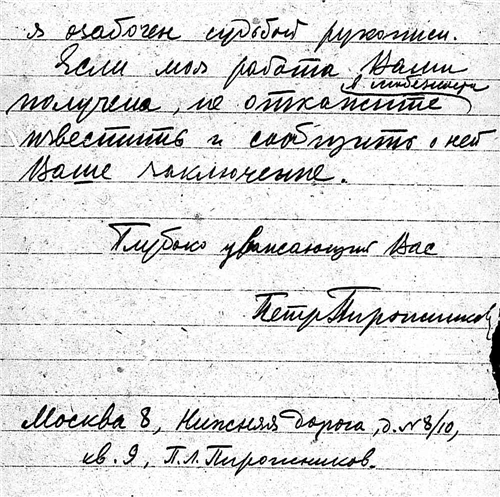 я озабочен судьбой рукописи.
Если моя работа Вами
получена, не откажите в любезности
известить и сообщить о ней
Ваше заключение.
Глубоко уважающий Вас
Петр Пирожников
Москва 8, Нижняя дорога, д. № 8/10,
кв. 9, П.Л. Пирожников.